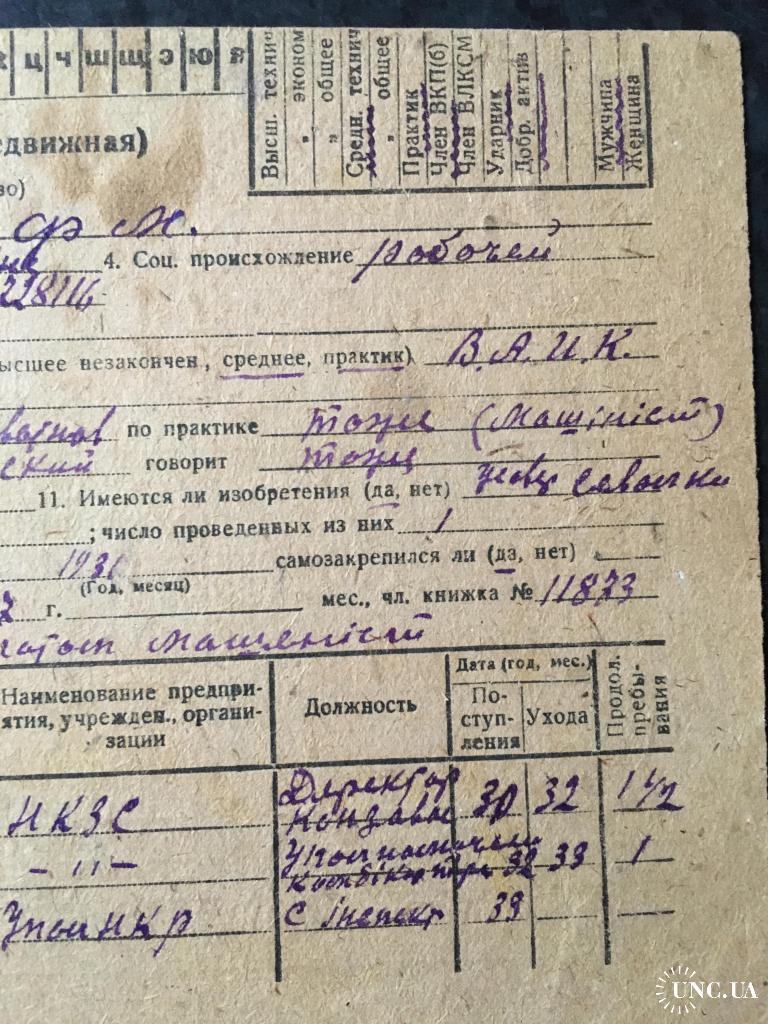 ц ч ш щ э ю я
Высш. технич
" эконом
" общее
Средн. технич
" общее
Практик
Член ВКП(б)
Член ВЛКСМ
Ударник
Добр. актив
Мужчина
Женщина
едвижная)
во)
4. Соц. происхождение рабочей
22811
ысшее незакончен, среднее, практик) В.А.И.К.
по практике тоже (Машініст)
ский говорит тоже
11. Имеются ли изобретения (да, нет)
; число проведенных из них 1
193 самозакрепился ли (да, нет)
(Год, месяц)
г. мес., чл. книжка № 11873
машеніст
Наименование предпри-
ятия, учрежден., органи-
зации
Должность
Дата (год, мес.)
По-
ступ-
ления
Ухода
Продол.
пребы-
вания
НКЗС Директор 30 32 1 1/2
— " — 32 33 1
Упол НКР С інспект 33
UNC.UA